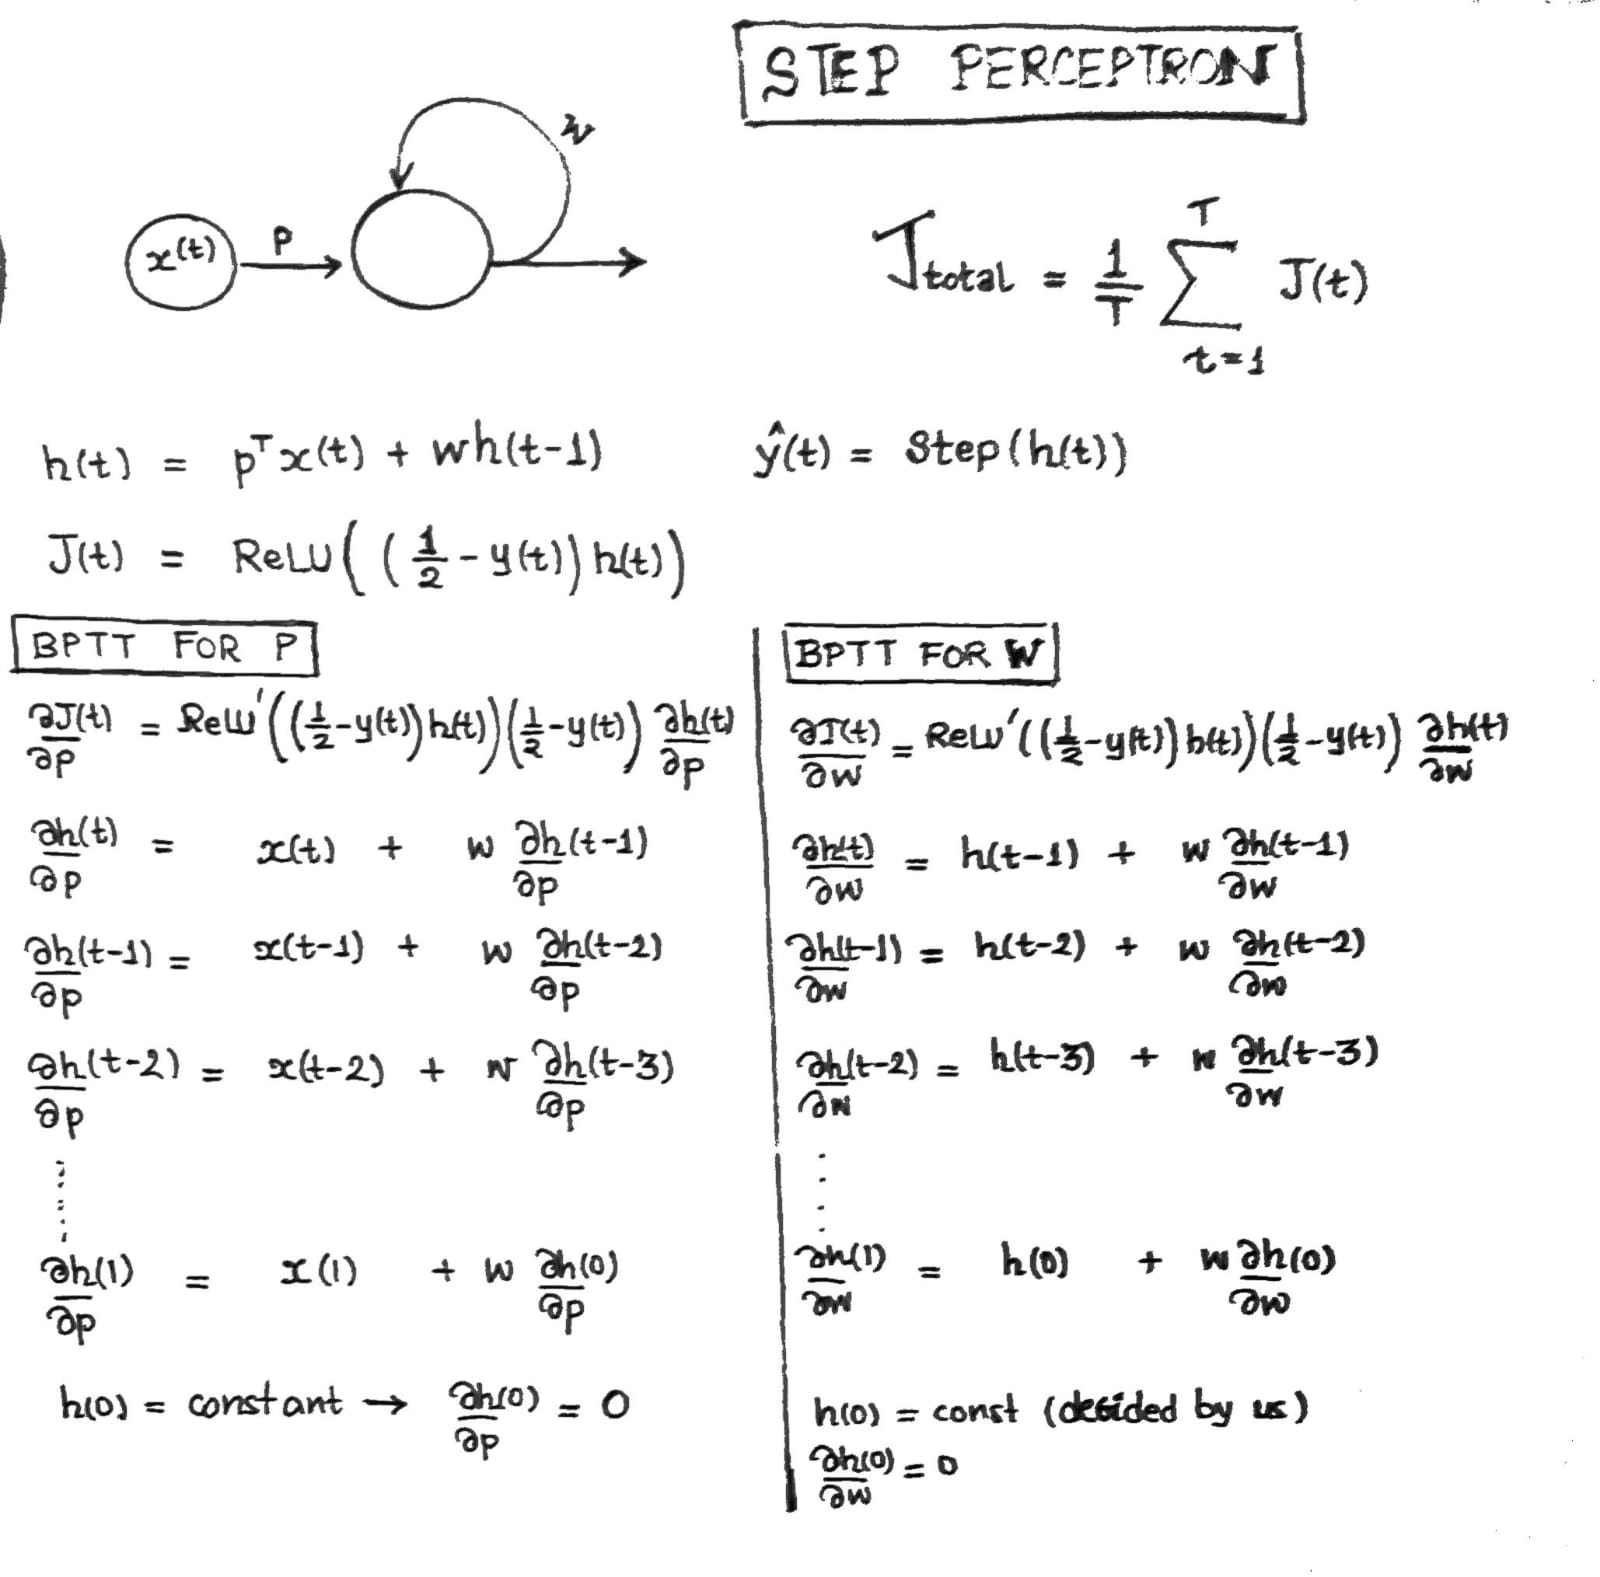 STEP PERCEPTRON
w
x(t)
P
J_total = 1/T Σ_{t=1}^{T} J(t)
h(t) = p^T x(t) + wh(t-1)
ŷ(t) = Step(h(t))
J(t) = ReLU((1/2 - y(t)) h(t))
BPTT FOR P
∂J(t)/∂p = ReLU'((1/2 - y(t)) h(t)) (1/2 - y(t)) ∂h(t)/∂p
∂h(t)/∂p = x(t) + w ∂h(t-1)/∂p
∂h(t-1)/∂p = x(t-1) + w ∂h(t-2)/∂p
∂h(t-2)/∂p = x(t-2) + w ∂h(t-3)/∂p
......
∂h(1)/∂p = x(1) + w ∂h(0)/∂p
h(0) = constant → ∂h(0)/∂p = 0
BPTT FOR W
∂J(t)/∂w = ReLU'((1/2 - y(t)) h(t)) (1/2 - y(t)) ∂h(t)/∂w
∂h(t)/∂w = h(t-1) + w ∂h(t-1)/∂w
∂h(t-1)/∂w = h(t-2) + w ∂h(t-2)/∂w
∂h(t-2)/∂w = h(t-3) + w ∂h(t-3)/∂w
....
∂h(1)/∂w = h(0) + w ∂h(0)/∂w
h(0) = const (decided by us)
∂h(0)/∂w = 0